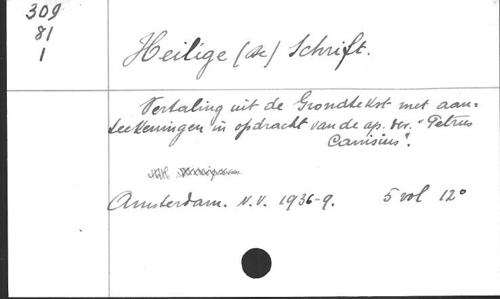 309
81
1
Heilige (De) Schrift.
Vertaling uit de Grondtekst met aan-
teekeningen in opdracht van de ap. ver. "Petrus
Canisius".
Amsterdam. N.V. 1936-9. 5 vol 12°